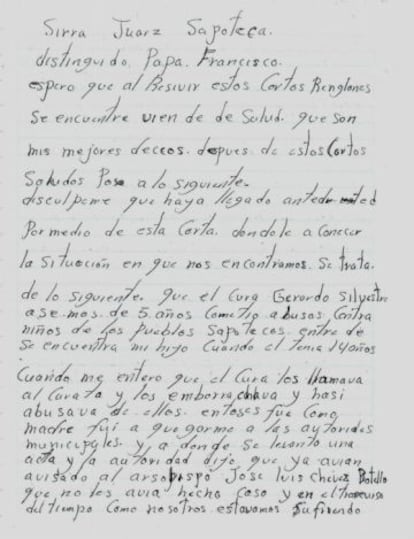 Sirra Juarz Sapoteca.
distinguido. Papa. Francisco.
espero que al Resivir estos Cortos Renglones
Se encuentre vien de de Salud. que son
mis mejores deceos. depues de estos Cortos
Saludos Paso a lo siguiente.
disculpeme que haya llegado ante usted
Por medio de esta Carta. dondole a Conocer
la Situación en que nos encontramos. Se trata.
de lo siguiente. que el Cura Gerardo Silvestre
ase mas de 5 años Cometio abusos Contra
niños de los Pueblos Sapotecos. entre de
Se encuentra mi hijo Cuando el tenia 14 años
Cuando me entero que el Cura los llamava
al Curato y los emborrachava y hasi
abusava de ellos. entoses fue Como
madre fui a quegarme a las autoridades
municipales. y a donde se levanto una
acta y la autoridad dijo que ya avian
avisado al arsobispo Jose Luis Chavez Botello
que no les avia hecho caso y en el trancurso
del tiempo Como nosotros estavamos Sufriendo